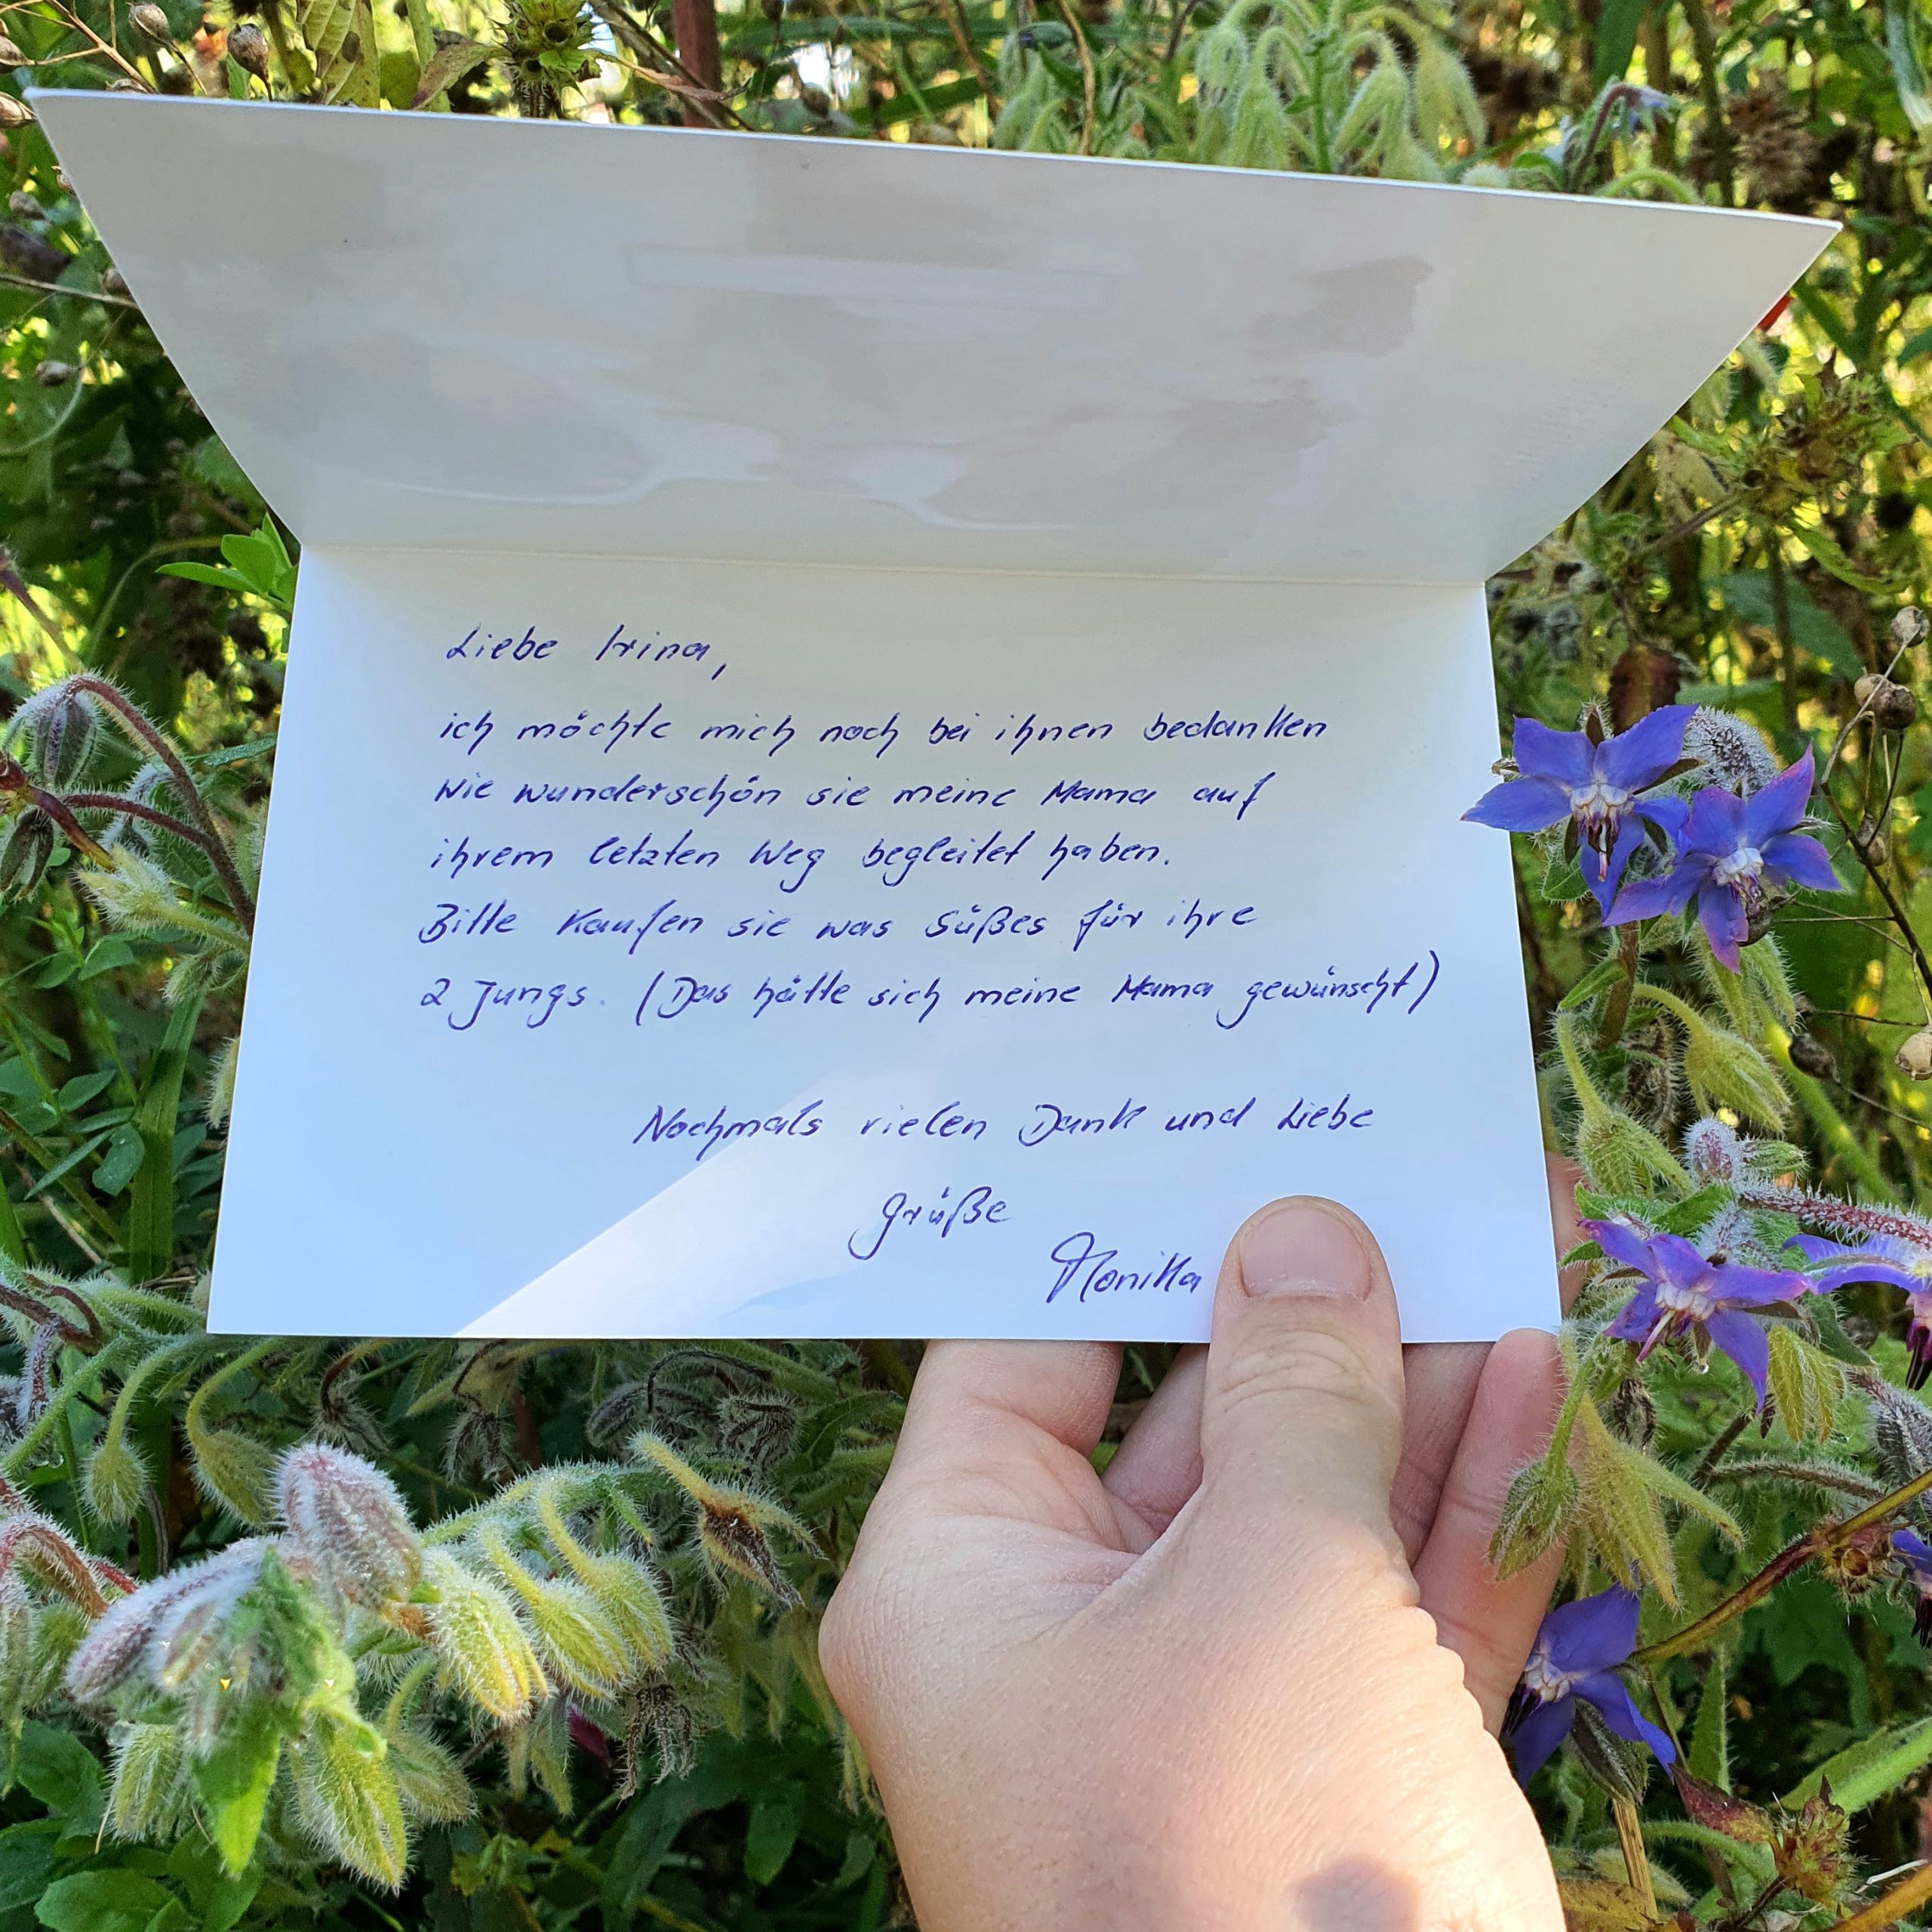 Liebe Irina,
ich möchte mich noch bei ihnen bedanken
wie wunderschön sie meine Mama auf
ihrem letzten Weg begleitet haben.
Bitte kaufen sie was Süßes für ihre
2 Jungs. (Das hätte sich meine Mama gewünscht)
Nochmals vielen Dank und Liebe
Grüße
Monika